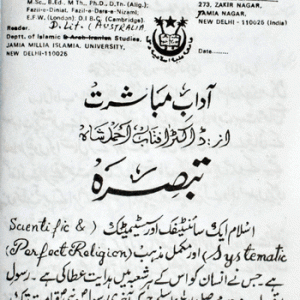 M.Sc., B.Ed., M Th., Ph. D., D.Th. (Alig.);
Fazil-e-Diniat, Fazil-e-Dars-e-Nizami.
E.F.W. (London); D.I B.C. (Cambridge).
Reader. D. Lit. (AUSTRALIA
Deptt. of Islamic & Arab-Iranian Studies,
JAMIA MILLIA ISLAMIA, UNIVERSITY,
NEW DELHI-110025 (INDIA).
273, ZAKIR NAGAR,
JAMIA NAGAR,
NEW DELHI - 110025 (India)
آداب مباشرت
از: ڈاکٹر آفتاب احمد شاہ
تبصرہ
اسلام ایک سائنٹیفک اور سیسٹیمیٹک (Scientific &
Systematic) اور مکمل مذہب (Perfect Religion)
ہے جس نے انسان کو اس کے ہر شعبہ میں ہدایت عطا کی ہے۔ رسول